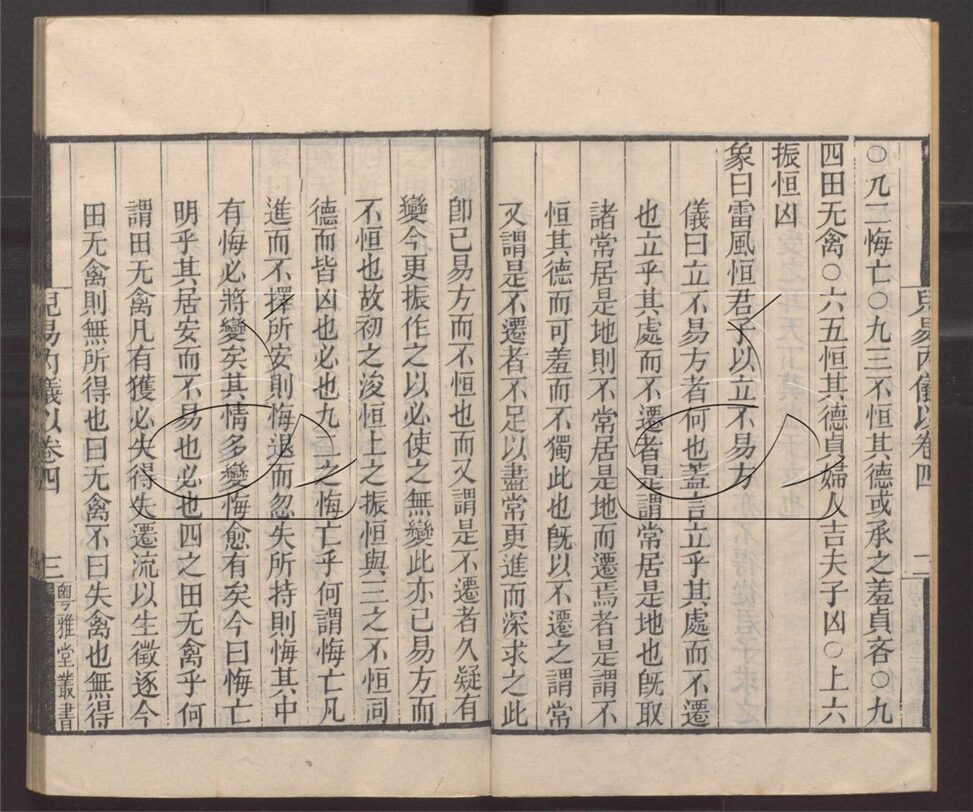 ○九二悔亡○九三不恒其德或承之羞貞吝○九
四田无禽○六五恒其德貞婦人吉夫子凶○上六
振恒凶
象曰雷風恒君子以立不易方
儀曰立不易方者何也蓋言立乎其處而不遷
也立乎其處而不遷者是謂常居是地也旣取
諸常居是地則不常居是地而遷焉者是謂不
恒其德而可羞而不獨此也旣以不遷之謂常
又謂是不遷者不足以盡常更進而深求之此
兒易內儀以卷四
二
卽已易方而不恒也而又謂是不遷者久疑有
變今更振作之以必使之無變此亦已易方而
不恒也故初之浚恒上之振恒與三之不恒同
德而皆凶也必也九二之悔亡乎何謂悔亡凡
進而不擇所安則悔退而忽失所持則悔其中
有悔必將變矣其情多變悔愈有矣今曰悔亡
明乎其居安而不易也必也四之田无禽乎何
謂田无禽凡有獲必失得失遷流以生徵逐今
田无禽則無所得也曰无禽不曰失禽也無得
兒易內儀以卷四
三
粵雅堂叢書